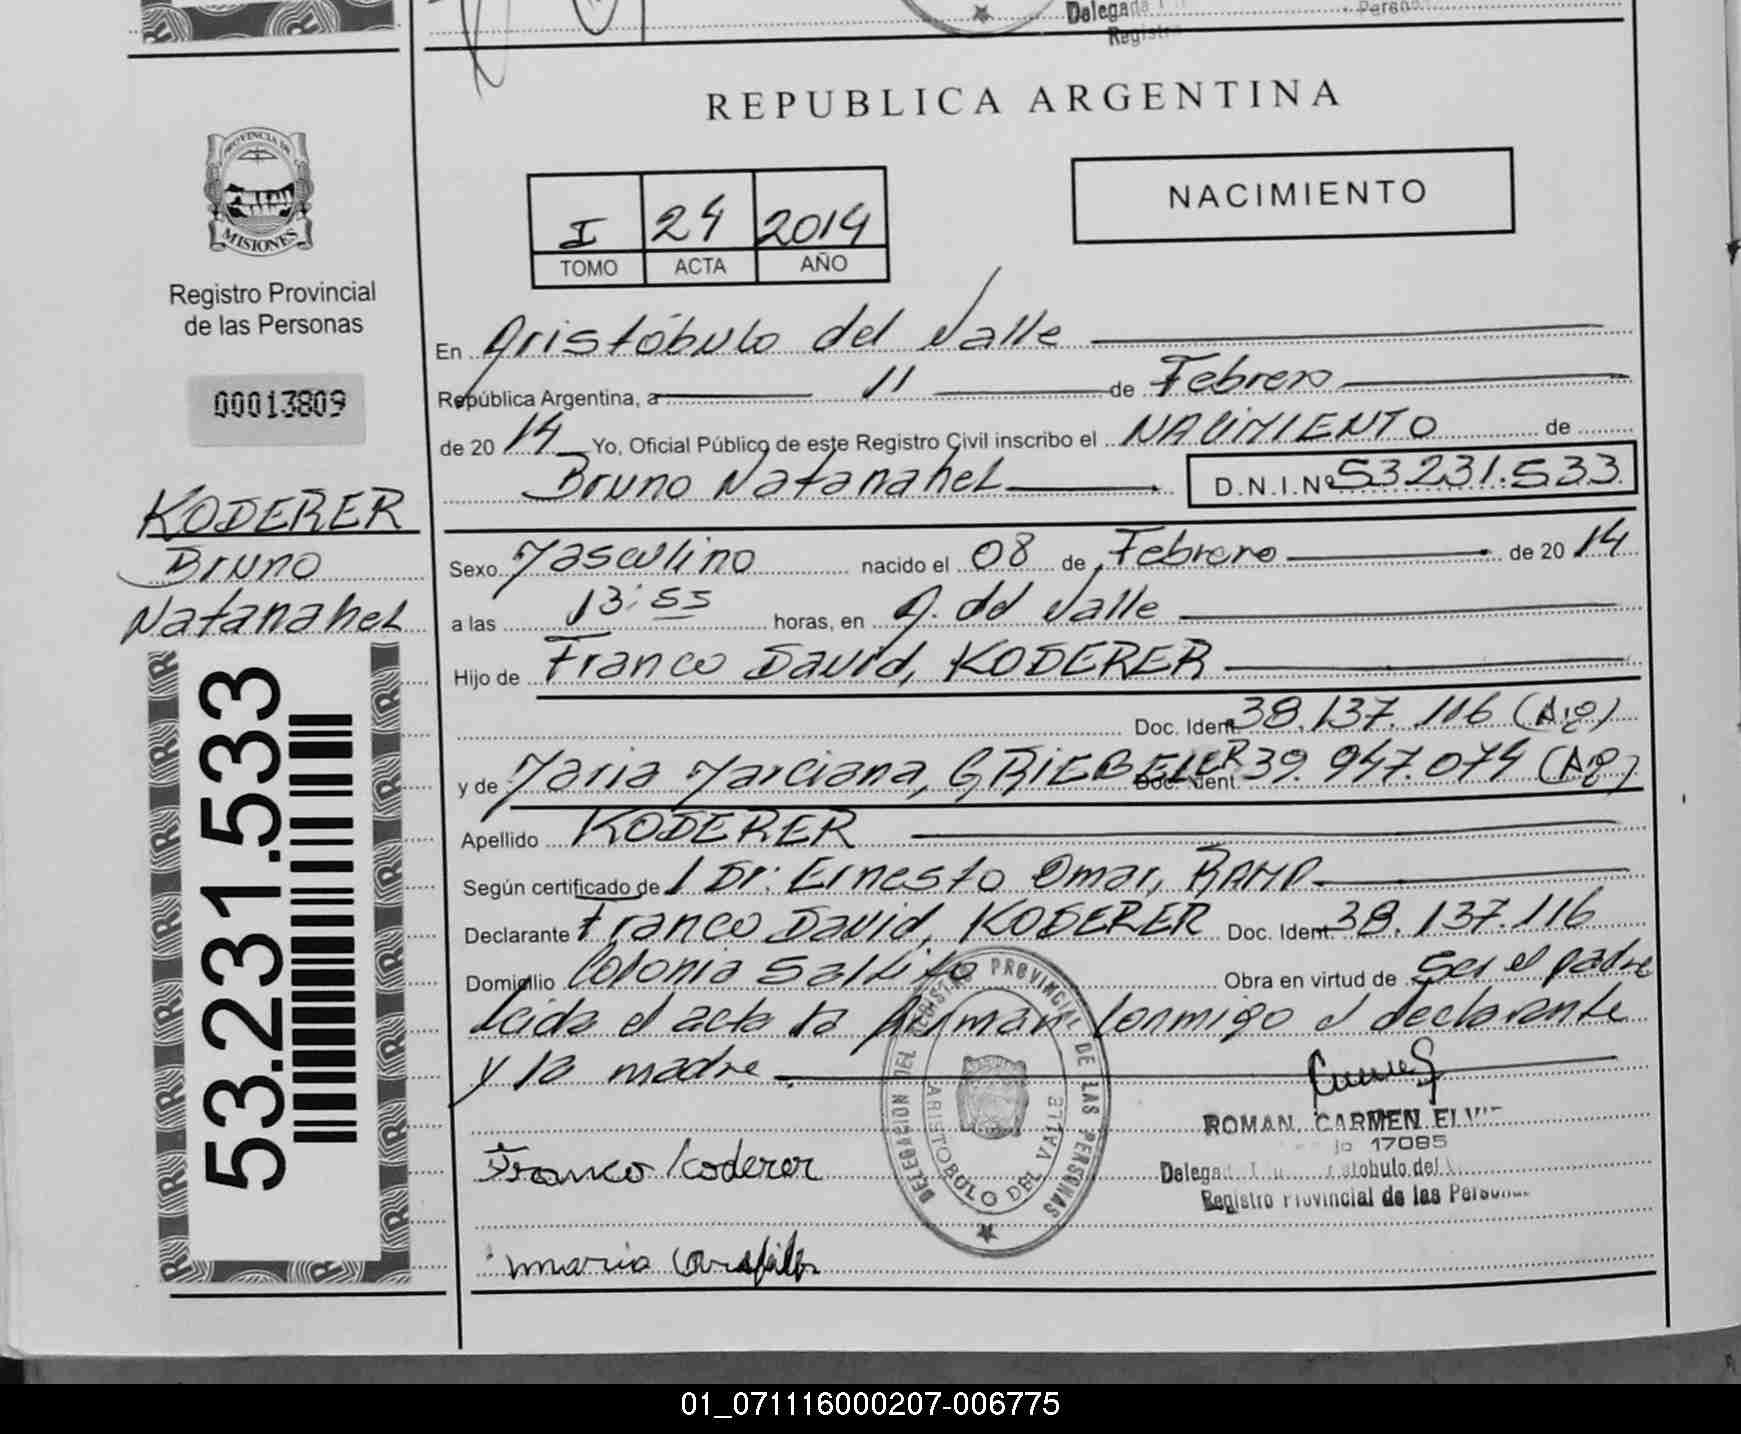 Delega
Regist
REPUBLICA ARGENTINA
PROVINCIA DE
MISIONES
Registro Provincial
de las Personas
00013809
KODERER
Bruno
Natanahel
53.231.533
I 24 2014
TOMO ACTA AÑO
NACIMIENTO
En Aristóbulo del Valle
República Argentina, a 11 de Febrero
de 20 14 Yo, Oficial Público de este Registro Civil inscribo el NACIMIENTO de
Bruno Natanahel D.N.I.Nº 53231.533
Sexo Masculino nacido el 08 de Febrero de 20 14
a las 13:55 horas, en A. del Valle
Hijo de Franco David, KODERER
Doc. Ident. 38.137.116 (Arg)
y de Maria Marciana, GRIEBELER Doc. Ident. 39.947.074 (Arg)
Apellido KODERER
Según certificado de / Dr: Ernesto Omar, RAMP
Declarante Franco David, KODERER Doc. Ident. 38.137.116
Domicilio Colonia Saltito Obra en virtud de Ser el padre
Leida el acta la firman conmigo el declarante
y la madre
DELEGACION DEL REGISTRO PROVINCIAL DE LAS PERSONAS
ARISTOBULO DEL VALLE
ROMAN, CARMEN ELVI
17085
Delega stobulo del
Registro Provincial de las Personas
Franco Koderer
maria
01_071116000207-006775